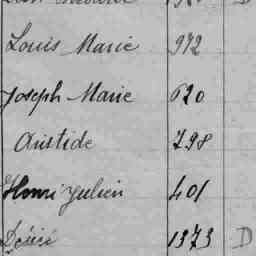 Louis Marie 972
Joseph Marie 620
Aristide 798
Henri Julien 401
Désiré 1373 D